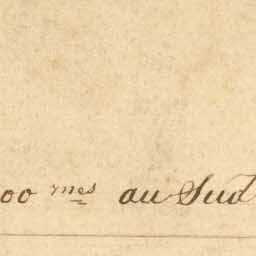 00 mes au Sud